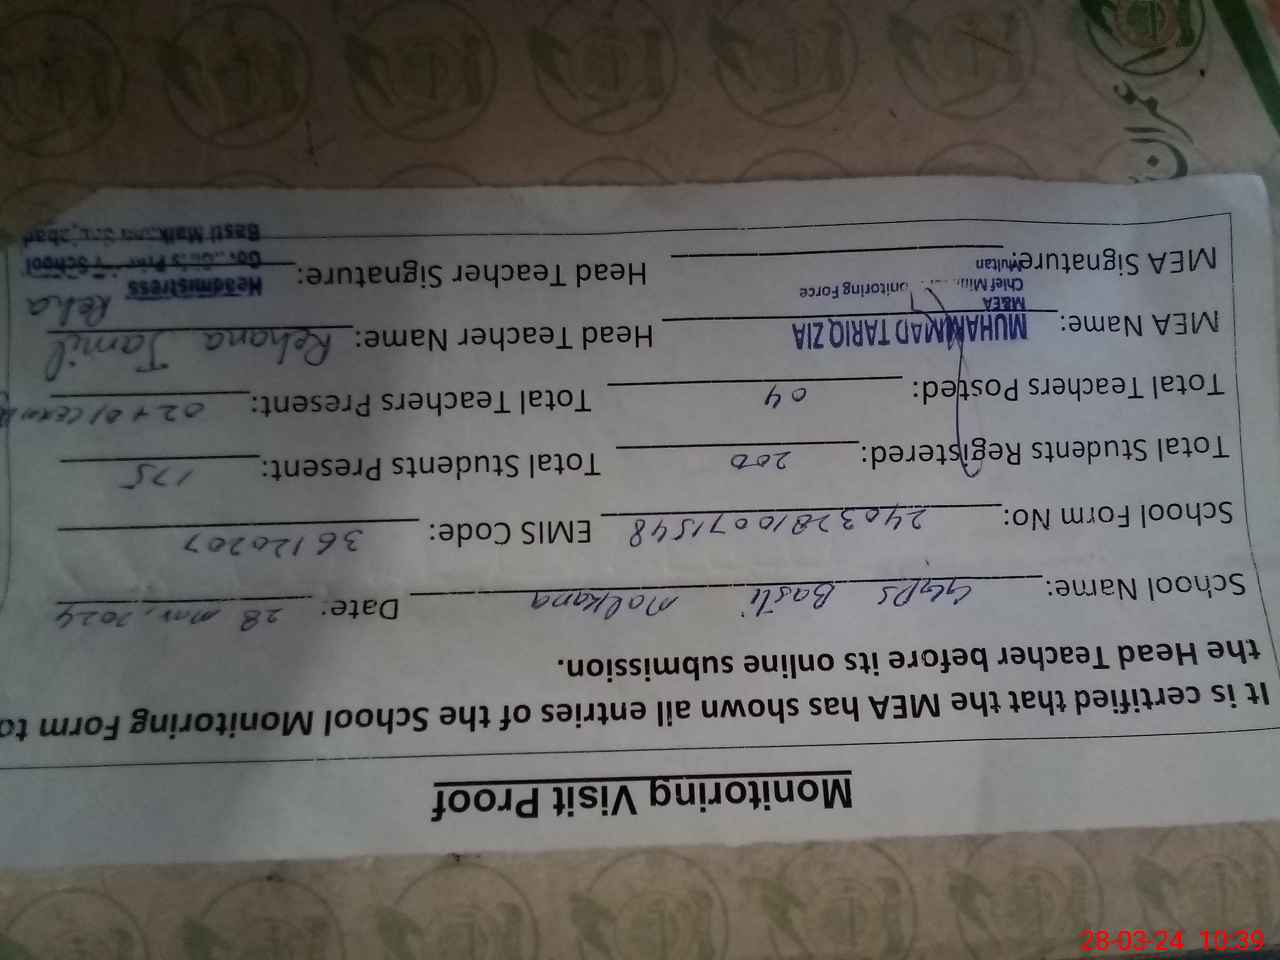 Monitoring Visit Proof
It is certified that the MEA has shown all entries of the School Monitoring Form to
the Head Teacher before its online submission.
School Name: GGPS Basti Malkana Date: 28 Mar, 2024
School Form No: 24032810071548 EMIS Code: 36120207
Total Students Registered: 200 Total Students Present: 175
Total Teachers Posted: 04 Total Teachers Present: 02+01
MEA Name: MUHAMMAD TARIQ ZIA Head Teacher Name: Rehana Jamil
M&EA
Chief Monitoring Force
Multan
MEA Signature: Head Teacher Signature: Reha
Headmistress
School
Basti
28-03-24 10:39